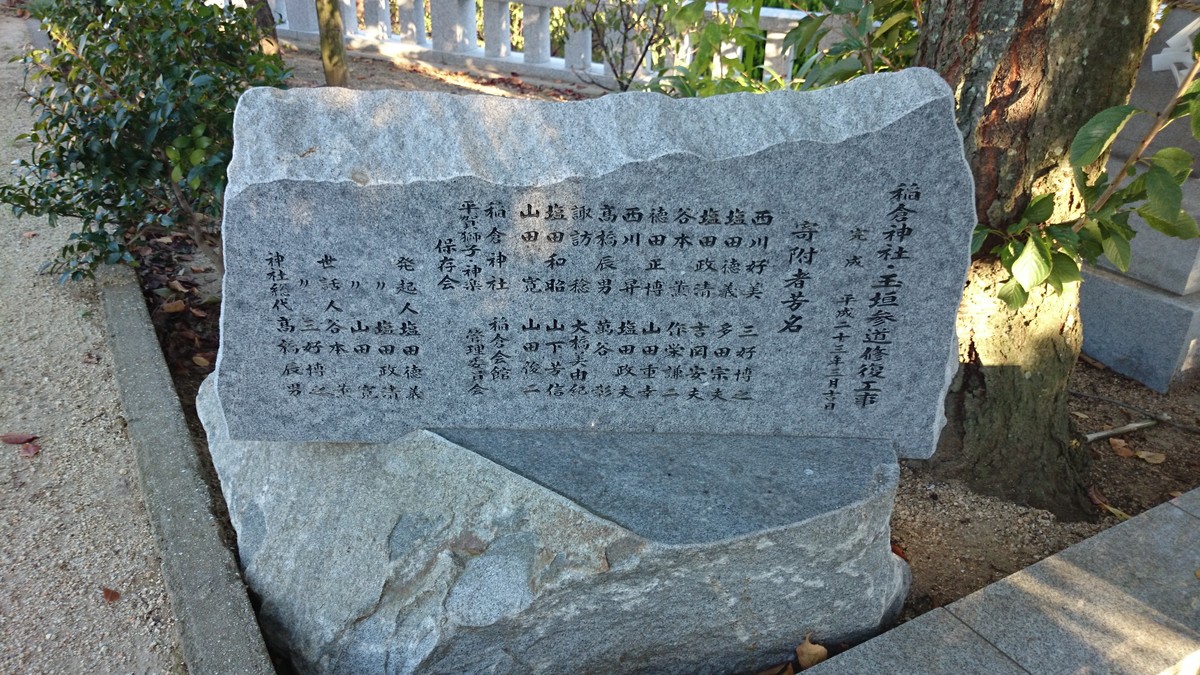 稲倉神社 玉垣参道修復工事
完成 平成二十三年三月吉日
寄附者芳名
西川好美 三好博之
塩田徳義 多田宗夫
塩田政清 吉岡安夫
谷本薫 作栄謙二
徳田正博 山田重幸
西川昇 塩田政夫
髙橋辰男 萬谷彰
諏訪稔 大橋美由紀
塩田和昭 山下芳信
山田寛 山田俊二
稲倉神社 稲倉会館
管理委員会
平賀獅子神楽
保存会
発起人 塩田徳義
〃 塩田政清
〃 山田寛
世話人 谷本薫
〃 三好博之
神社総代 髙橋辰男